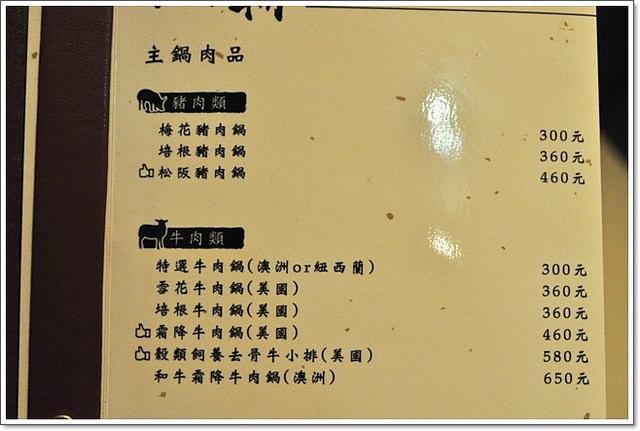 主鍋肉品
豬肉類
梅花豬肉鍋 300元
培根豬肉鍋 360元
松阪豬肉鍋 460元
牛肉類
特選牛肉鍋(澳洲or紐西蘭) 300元
雪花牛肉鍋(美國) 360元
培根牛肉鍋(美國) 360元
霜降牛肉鍋(美國) 460元
穀類飼養去骨牛小排(美國) 580元
和牛霜降牛肉鍋(澳洲) 650元